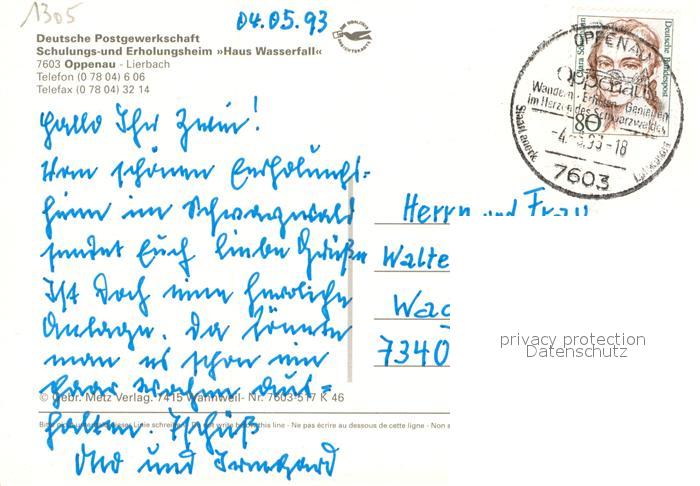 1305
04.05.93
Deutsche Postgewerkschaft
Schulungs-und Erholungsheim »Haus Wasserfall«
7603 Oppenau - Lierbach
Telefon (0 78 04) 6 06
Telefax (0 78 04) 32 14
Hallo Ihr Zwei!
Vom schönen Erholungs-
heim im Schwarzwald
sendet Euch liebe Grüße
Ist doch eine herrliche
Anlage. Da könnte
man es schon ein
paar Wochen aus-
halten. Tschüß
Otto und Irmgard
Herrn und Frau
Walte
Wac
7340
OPPENAU
oppenau
Wandern - Erholen - Genießen
im Herzen des Schwarzwaldes
-4.-5.93-18
7603
Clara Schumann
Deutsche Bundespost
80
privacy protection
Datenschutz
© Gebr. Metz Verlag. 7415 Wannweil- Nr. 7603-517 K 46
this line - Ne pas écrire au dessous de cette ligne - Non s